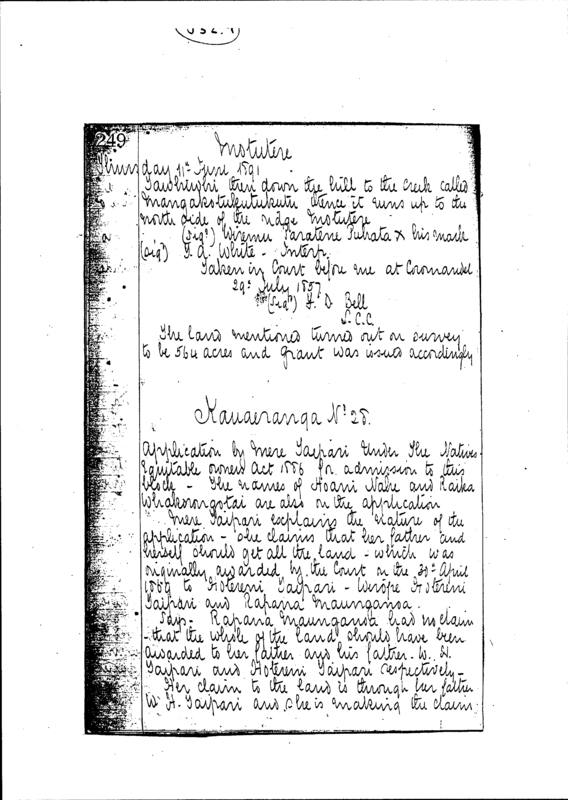 249
Motutere
Thursday 11th June 1891
then down the hill to the Creek called
Mangakotukutukutu thence it runs up to the
north side of the ridge Motutere
(Sigd) Wiremu Paratene Puhata x his mark
(Sigd) White - Interp.
Taken in Court before me at Coromandel
29th July 1857
(Sigd) F. D. Bell
L.C.C.
The land mentioned turned out on survey
to be 564 acres and grant was issued accordingly
Kauaeranga No 28.
Application by Mere Taipari Under The Natives
Equitable owners Act 1886 for admission to this
block - The names of Hoani Nahe and Raika
Whakarongotai are also on the application
Mere Taipari explains the nature of the
application - she claims that her father and
herself should get all the land - which was
originally awarded by the Court on the 30th April
1869 to Hotereni Taipari - Wirope Hotereni
Taipari and Rapana Maunganoa.
Says - Rapana Maunganoa had no claim
- that the whole of the land should have been
awarded to her father and his father - W. H.
Taipari and Hotereni Taipari respectively -
Her claim to the land is through her father
W. H. Taipari and she is making the claim